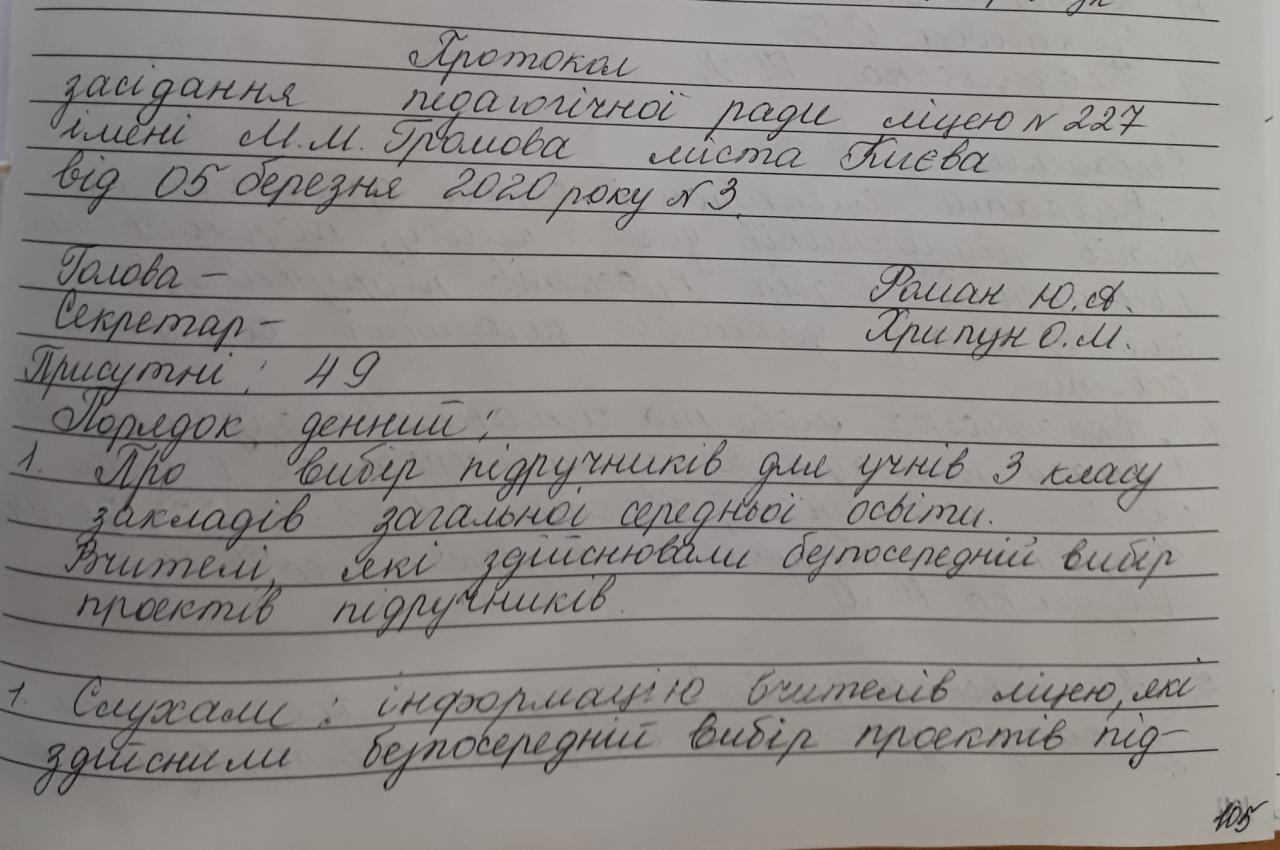 Протокол
засідання педагогічної ради ліцею № 227
імені М.М. Громова міста Києва
від 05 березня 2020 року № 3.
Голова – Роман Ю.А.
Секретар – Хрипун О.М.
Присутні: 49
Порядок денний:
1. Про вибір підручників для учнів 3 класу
закладів загальної середньої освіти.
Вчителі, які здійснювали безпосередній вибір
проєктів підручників.
1. Слухали: інформацію вчителів ліцею, які
здійснили безпосередній вибір проєктів під-
105